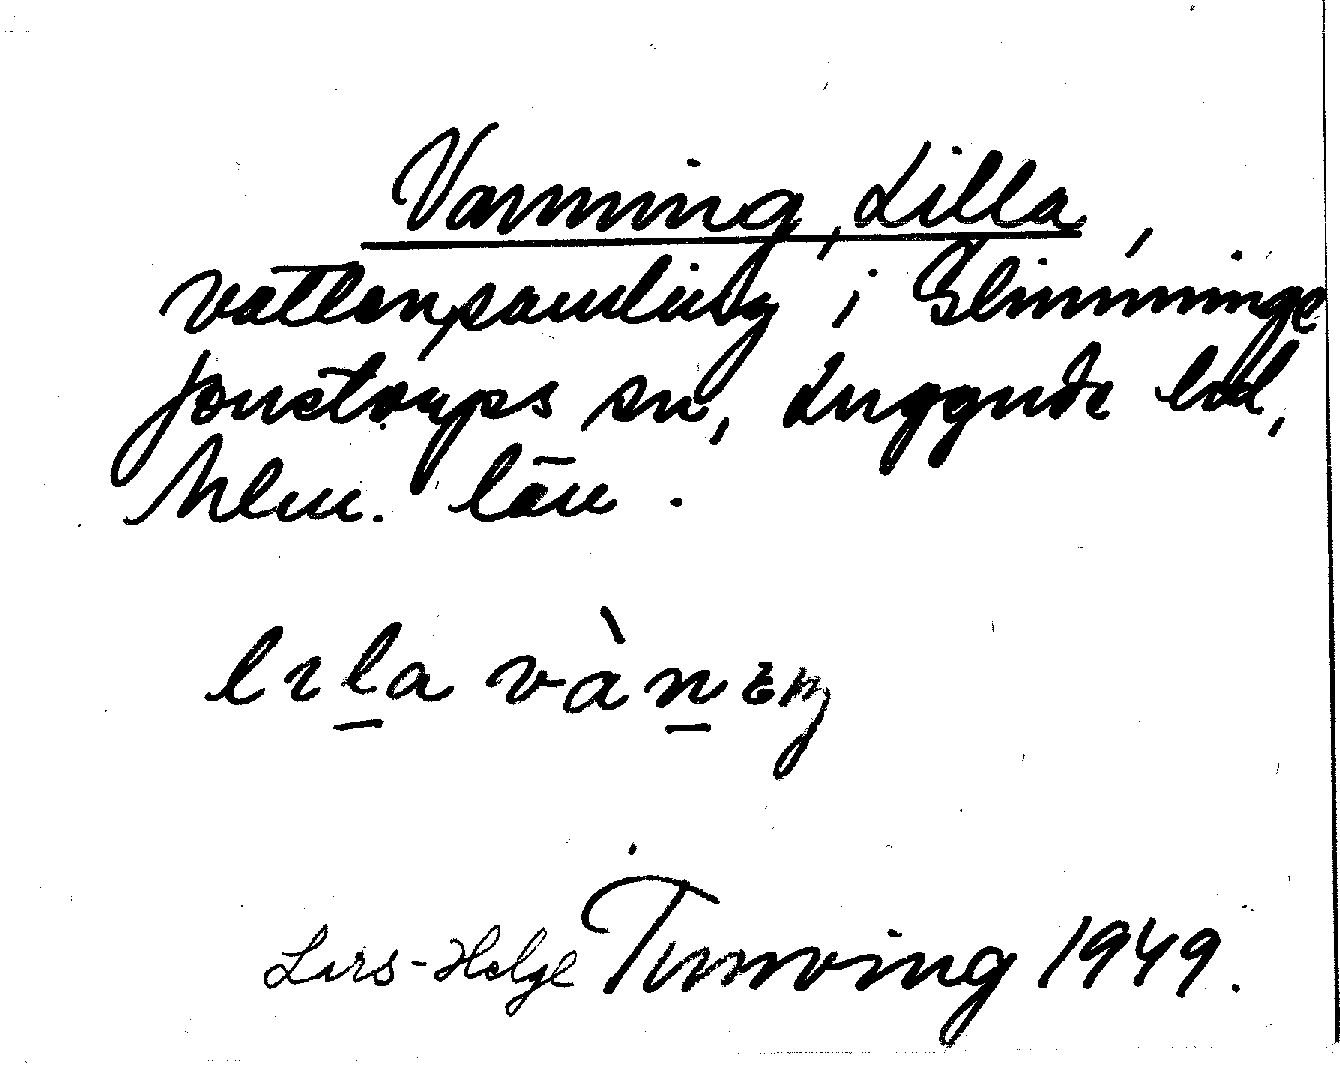 Vanning, Lilla,
vattensamling i Glimminge
Jonstorps sn, Luggude hd,
Mlm. län.
lɪla vànɛŋ
Lars-Helge Tunving 1949.